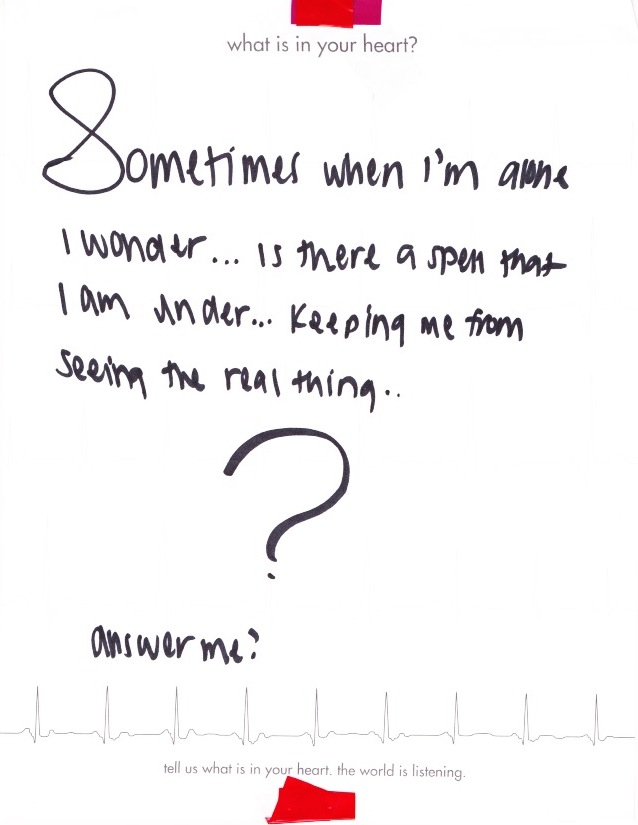 what is in your heart?
Sometimes when I'm alone
I wonder... Is there a spell that
I am under... Keeping me from
seeing the real thing..
?
answer me?
tell us what is in your heart. the world is listening.